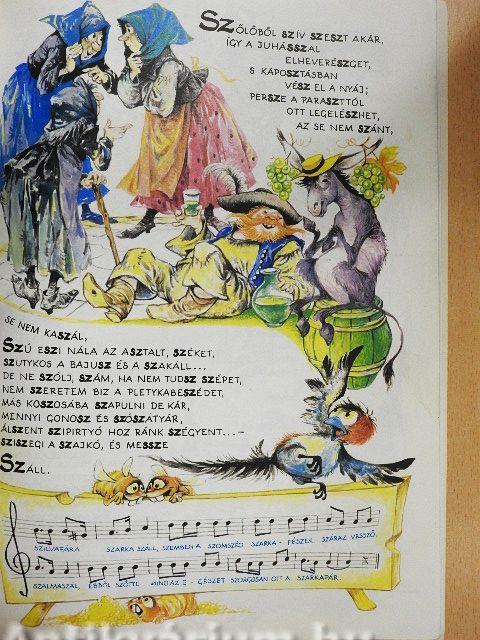 SZŐLŐBŐL SZÍV SZESZT AKÁR,
ÍGY A JUHÁSSZAL
ELHEVERÉSZGET,
S KÁPOSZTÁSBAN
VÉSZ EL A NYÁJ;
PERSZE A PARASZTTÓL
OTT LEGELÉSZHET,
AZ SE NEM SZÁNT,
SE NEM KASZÁL,
SZÚ ESZI NÁLA AZ ASZTALT, SZÉKET,
SZUTYKOS A BAJUSZ ÉS A SZAKÁLL...
DE NE SZÓLJ, SZÁM, HA NEM TUDSZ SZÉPET,
NEM SZERETEM BIZ A PLETYKABESZÉDET,
MÁS KOSZOSÁBA SZAPULNI DE KÁR,
MENNYI GONOSZ ÉS SZÓSZÁTYÁR,
ÁLSZENT SZIPIRTYÓ HOZ RÁNK SZÉGYENT...–
SZISZEGI A SZAJKÓ, ÉS MESSZE
SZÁLL.
SZILVAFÁRA SZARKA SZÁLL, SZEMBEN A SZOMSZÉD SZARKA - FÉSZEK. SZÁRAZ VESSZŐ,
SZALMASZÁL, EBBŐL SZŐTTE MIND AZ E - GÉSZET SZORGOSAN OTT A SZARKAPÁR.